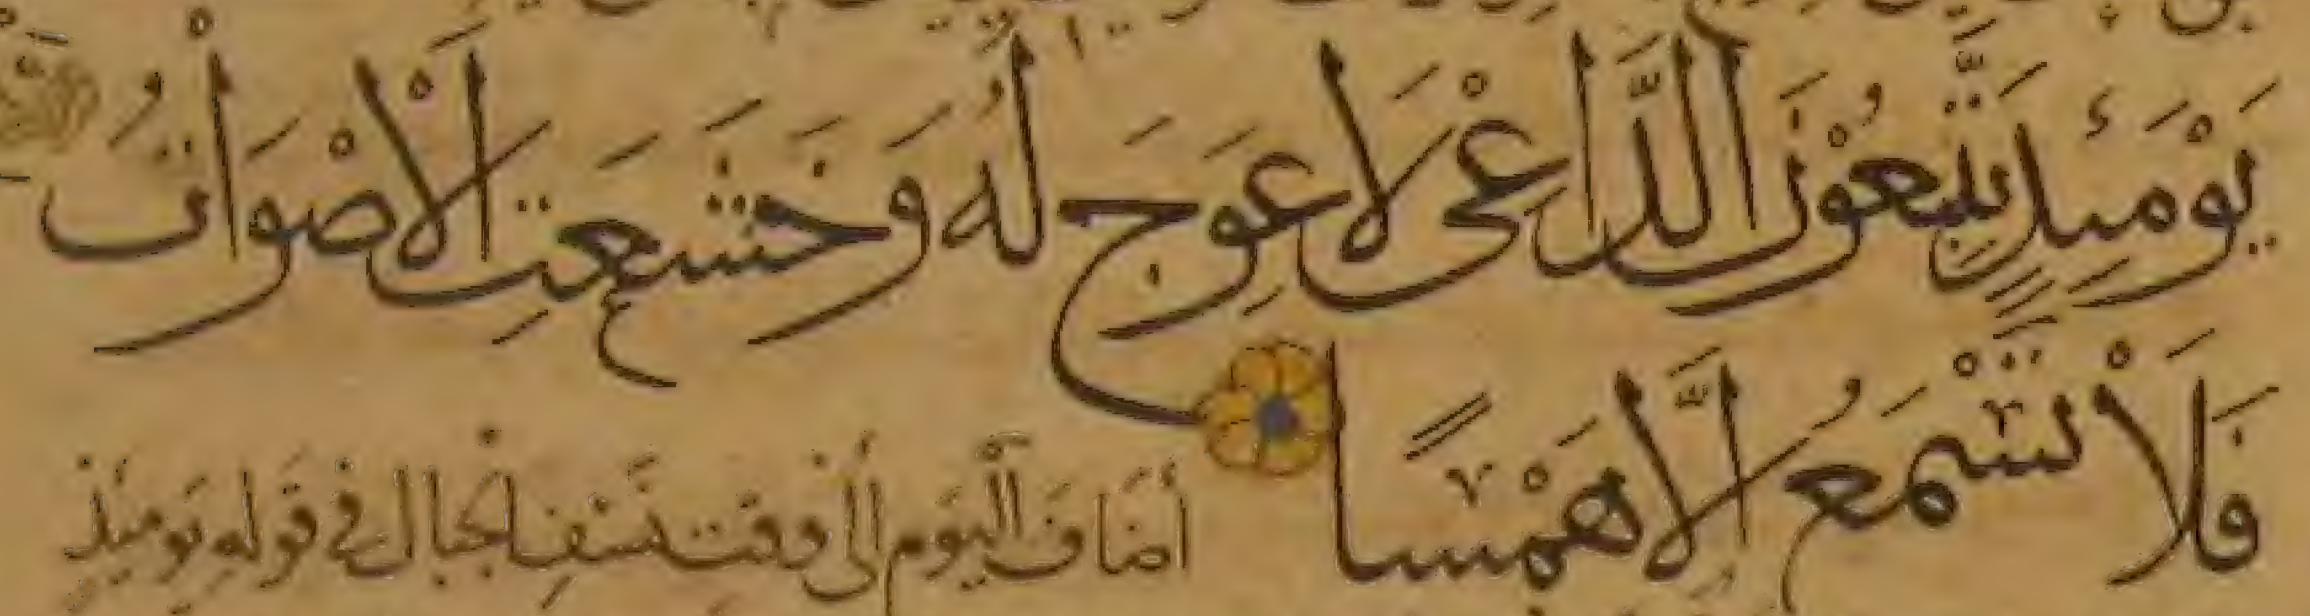 يَوْمَئِذٍ يَتَّبِعُوْنَ الدَّاعِىْ لَا عِوَجَ لَهُ وَخَشَعَتِ الْاَصْوَاتُ
فَلَا تَسْمَعُ اِلَّا هَمْسًا
أضَافَ اليَوم إلى وقت نَسْفِ الجبال في قَولهِ يَومئذٍ